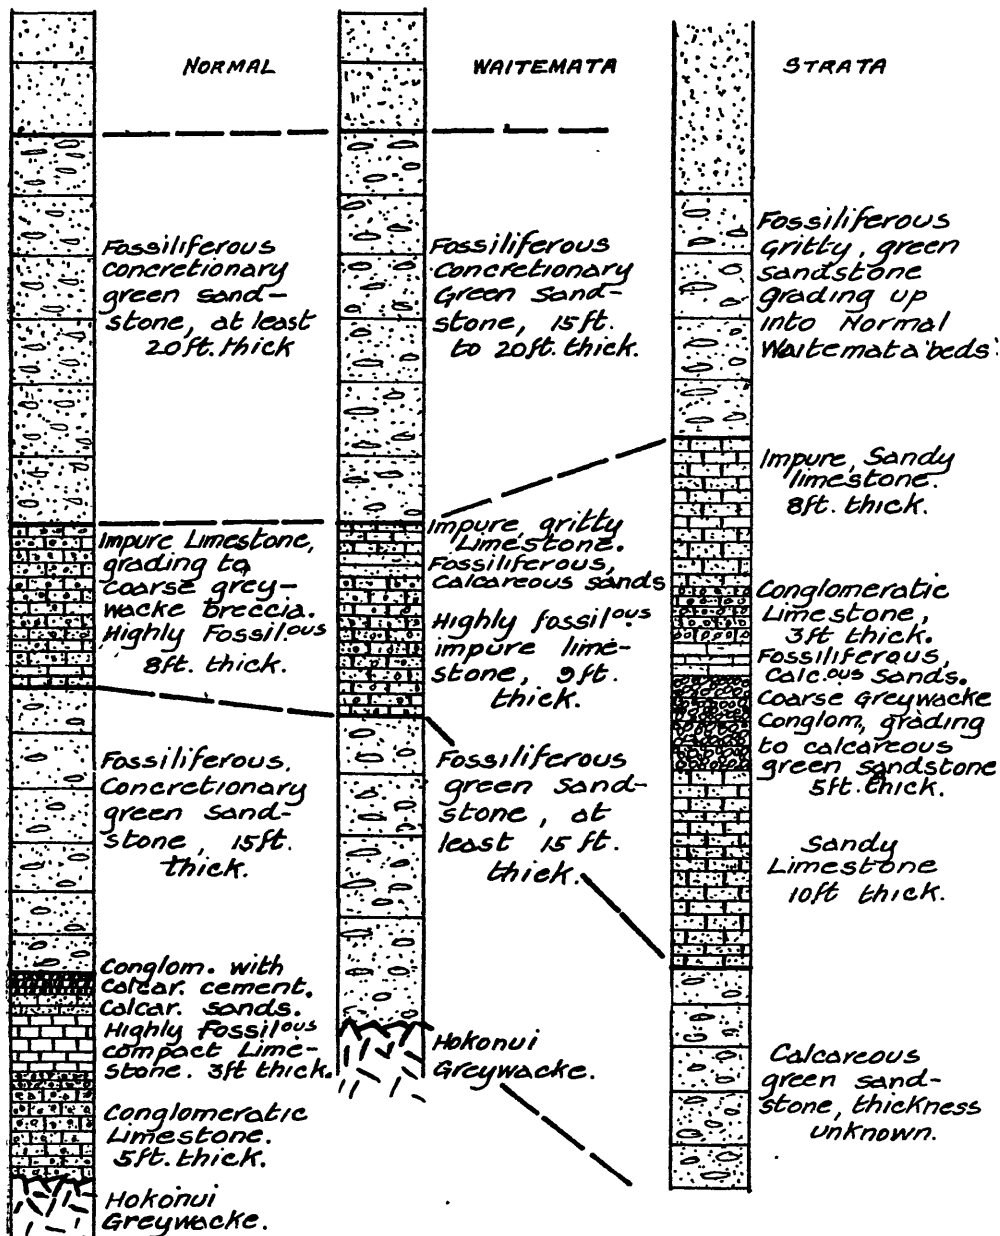 NORMAL WAITEMATA STRATA
Fossiliferous
concretionary
green sand-
stone, at least
20ft. thick
Impure Limestone,
grading to
coarse grey-
wacke breccia.
Highly Fossil.ous
8ft. thick.
Fossiliferous.
Concretionary
green sand-
stone, 15ft.
thick.
Conglom. with
calcar. cement.
Calcar. sands.
Highly Fossil.ous
compact Lime-
stone. 3ft thick.
Conglomeratic
Limestone.
5ft. thick.
Hokonui
Greywacke.
Fossiliferous
Concretionary
Green Sand-
stone, 15ft.
to 20ft. thick.
Impure, gritty
Limestone.
Fossiliferous,
calcareous sands
Highly fossil.ous
impure lime-
stone, 9ft.
thick.
Fossiliferous
green sand-
stone, at
least 15 ft.
thick.
Hokonui
Greywacke.
Fossiliferous
Gritty, green
sandstone
grading up
into Normal
Waitemata 'beds'.
Impure, Sandy
limestone.
8ft. thick.
Conglomeratic
Limestone,
3ft thick.
Fossiliferous,
Calc.ous Sands.
Coarse Greywacke
Conglom, grading
to calcareous
green sandstone
5ft. thick.
Sandy
Limestone
10ft thick.
Calcareous
green sand-
stone, thickness
unknown.